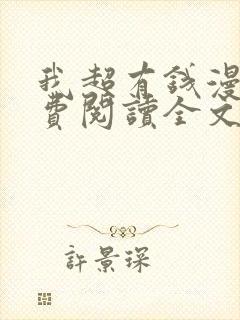 我超有錢漫
費閱讀全文
許景琛